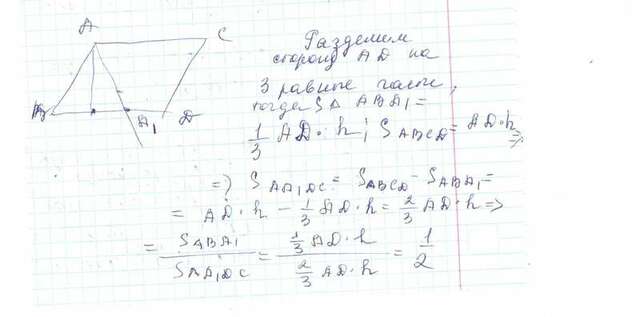 A
C
A₁
D
Разделим
сторону AD на
3 равные части,
тогда S△ ABA₁ =
1/3 AD · h ; SABCD = AD · h ⇒
⇒ SAA₁DC = SABCD - SABA₁ =
= AD · h - 1/3 AD · h = 2/3 AD · h ⇒
= SABA₁ / SAA₁DC = 1/3 AD · h / 2/3 AD · h = 1/2